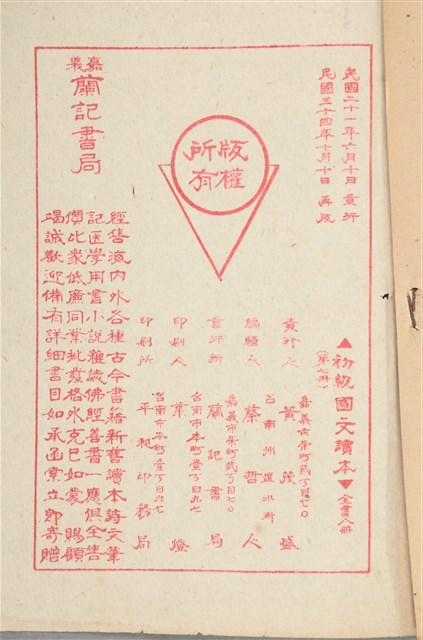 民國二十一年六月十日 發行
民國三十四年十月十日 再版
▲初級國文讀本▼全書八冊
(第七冊)
嘉義市榮町貳丁目七〇
發行人 黃茂盛
台南州鹽水郡
編輯人 蔡哲人
嘉義市榮町貳丁目七〇
發行所 蘭記書局
台南市本町壹丁目九七
印刷人 葉燈
台南市本町壹丁目九七
印刷所 平和印務局
版權
所有
嘉義
蘭記書局
經售海內外各種古今書籍新舊讀本詩文筆
記医學用書小說雜誌佛經善書一應俱全售
價比衆低廉同業批發格外克己如蒙 賜顧
竭誠歡迎備有詳細書目如承函索立即寄贈